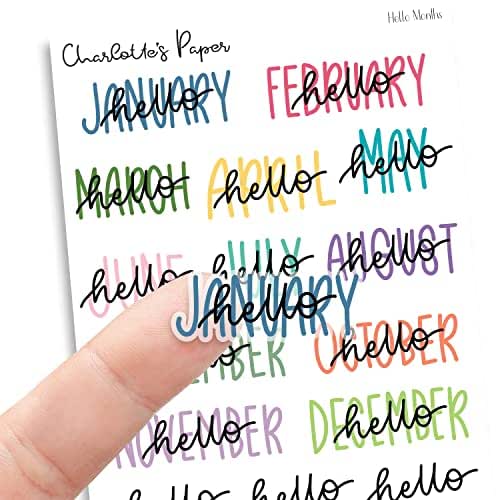 Hello Months
Charlotte's Paper
JANUARY hello
FEBRUARY hello
MARCH hello
APRIL hello
MAY hello
JUNE hello
JULY hello
AUGUST hello
JANUARY hello
hello
OCTOBER hello
NOVEMBER hello
DECEMBER hello
hello hello hello